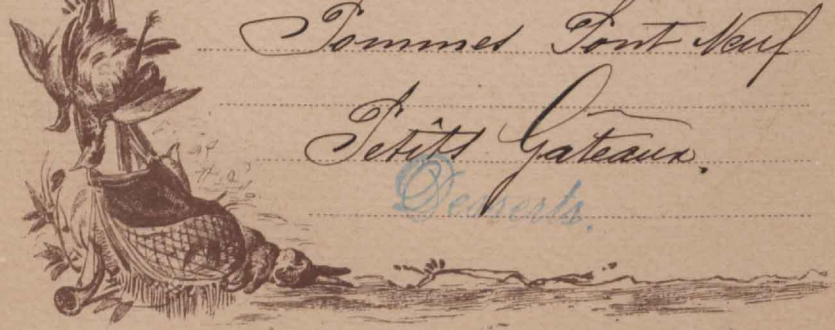 Pommes Pont Neuf
Petits Gâteaux.
Desserts.